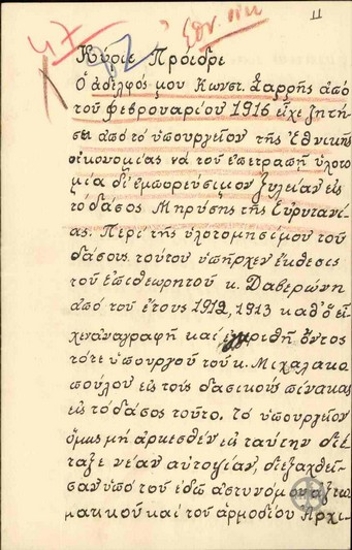 11
47
Κύριε Πρόεδρε
Ὁ ἀδελφός μου Κωνστ. Σαρρῆς ἀπὸ
τοῦ φεβρουαρίου 1916 εἶχε ζητή
σει ἀπὸ τὸ ὑπουργεῖον τῆς Ἐθνικῆς
οἰκονομίας νὰ τοῦ ἐπιτραπῇ ὑλοτο
μία δι' ἐμπορεύσιμον ξυλείαν εἰς
τὸ δάσος Μηρύσης τῆς Εὐρυτανί
ας. Περὶ τῆς ὑλοτομησίμου τοῦ
δάσους τούτου ὑπῆρχεν ἔκθεσις
τοῦ ἐπιθεωρητοῦ κ. Δαβερώνη
ἀπὸ τοῦ ἔτους 1912, 1913 καθ' ὃ εἶ
χεν ἀναγραφῆ καὶ ἐγκριθῆ ὄντος
τότε ὑπουργοῦ τοῦ κ. Μιχαλακο
πούλου εἰς τοὺς δασικοὺς πίνακας
εἰς τὸ δάσος τοῦτο. Τὸ ὑπουργεῖον
ὅμως μὴ ἀρκεσθὲν εἰς ταύτην διέ
ταξε νέαν αὐτοψίαν, διεξαχθεῖ
σαν ὑπὸ τοῦ ἐδῶ ἀστυνόμου ἀξιω
ματικοῦ καὶ τοῦ ἁρμοδίου Ἀρχι-